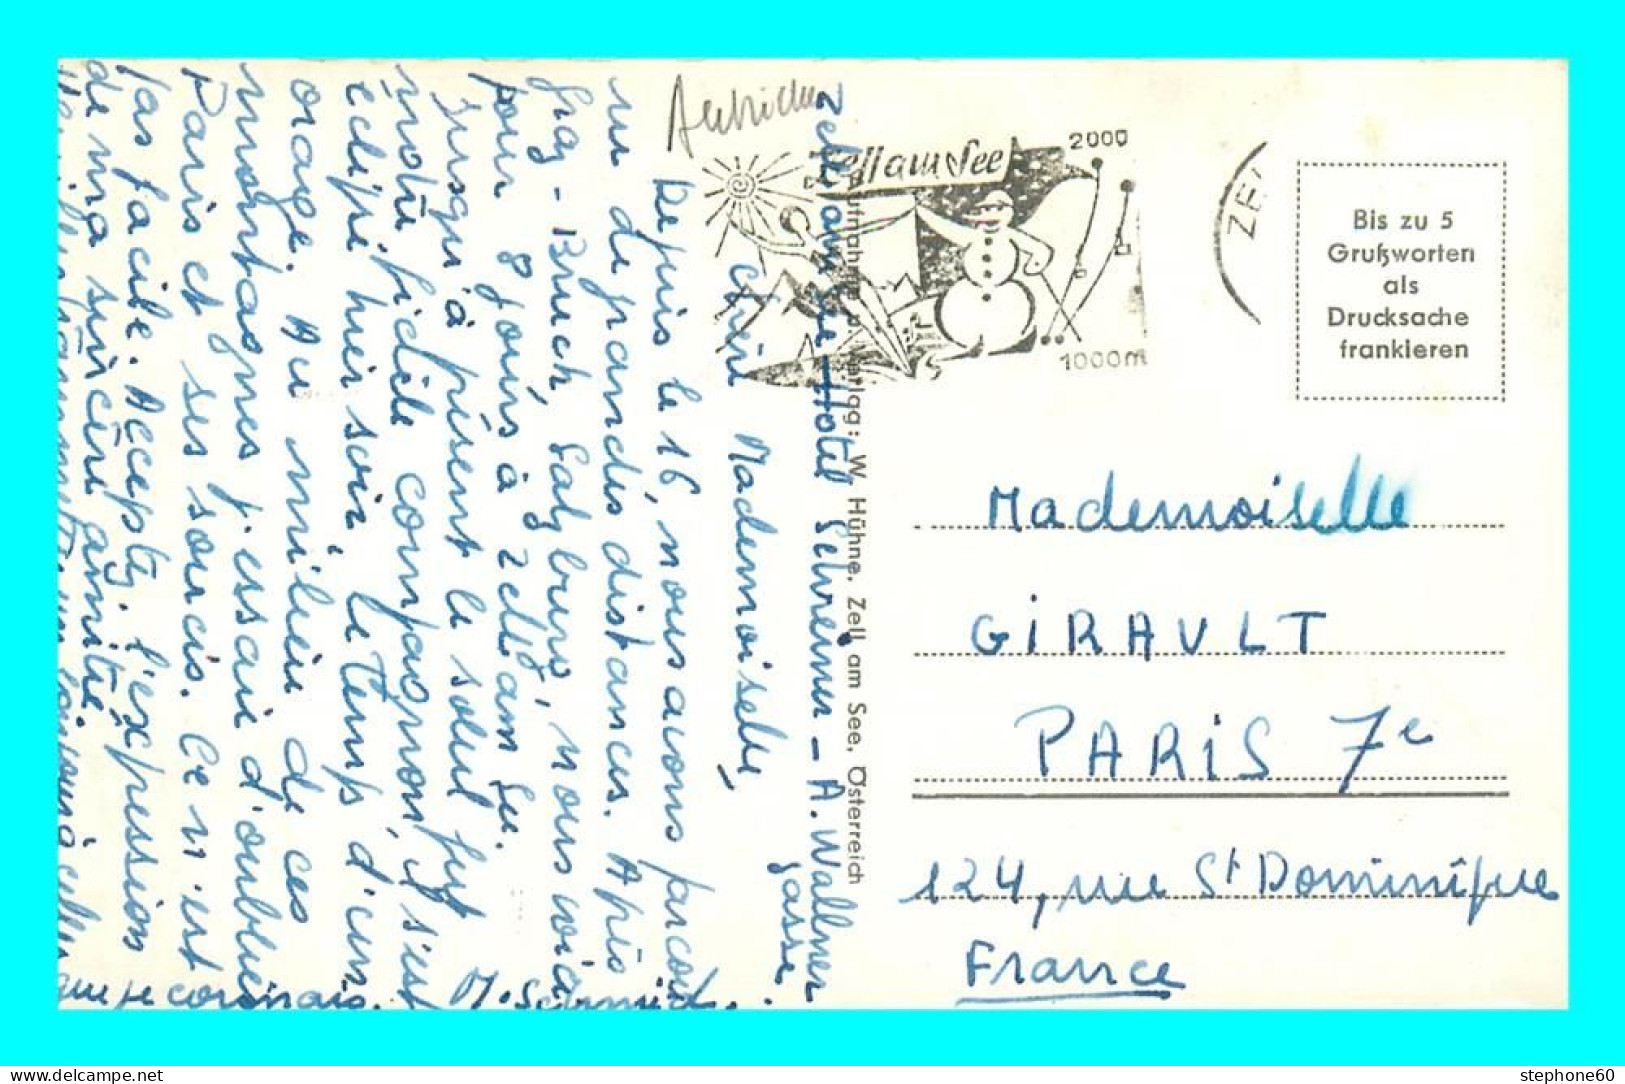 Autriche
Zell am See Hotel Schreiner - A. Wallner
gasse.
Chère Mademoiselle,
Depuis le 16, nous avons parcou
ru de grandes distances. Après
Graz - Bruck, Salzburg, nous voici
pour 8 jours à Zell am See.
Jusqu'à présent le soleil fut
notre fidèle compagnon, il s'est
éclipsé hier soir, le temps d'un
orage. Au milieu de ces
montagnes j'essaie d'oublier
Paris et ses soucis. Ce n'est
pas facile. Acceptez l'expression
de ma sincère amitié.
M. Schmid
que je connais.
Zell am See
2000
1000m
ZE
Bis zu 5
Grußworten
als
Drucksache
frankieren
Aufnahme u. Verlag: W. Hühne, Zell am See, Österreich
Mademoiselle
GIRAULT
PARIS 7e
124, rue St Dominique
France
stephone60